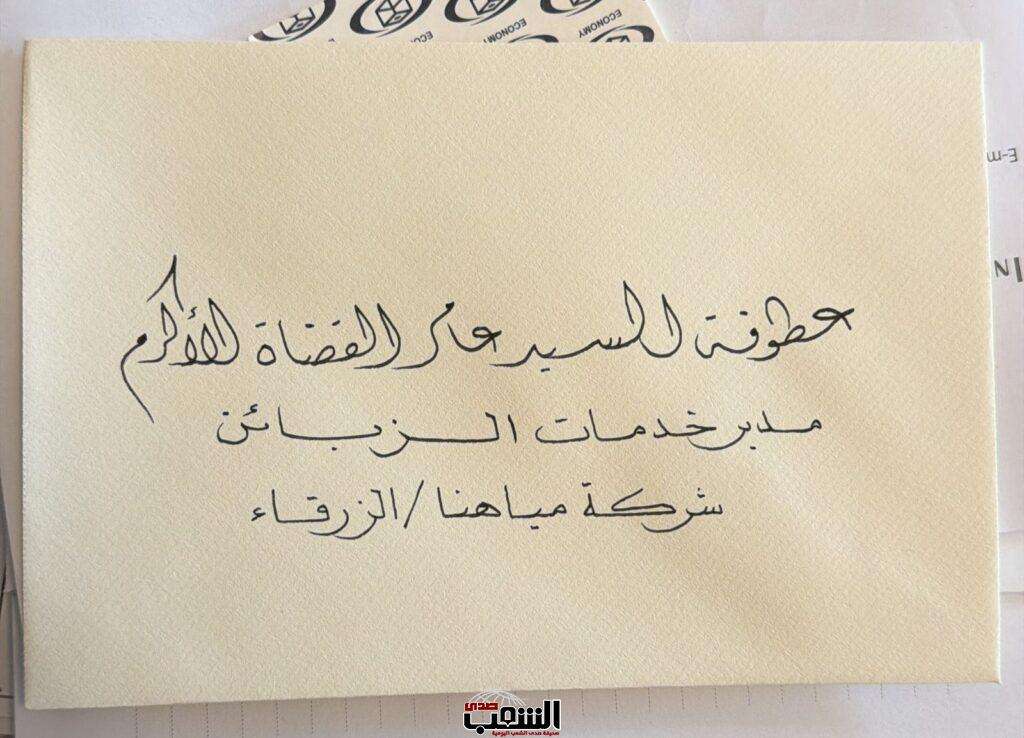 ECONOMY
ECONOMY
ECONOMY
E-m
IN
عطوفة السيد عامر القضاة الأكرم
مدير خدمات الزبائن
شركة مياهنا/الزرقاء
صدى
الشعب
صحيفة صدى الشعب اليومية